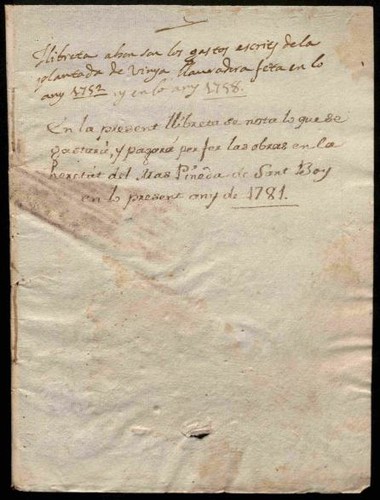 Llibreta ahon son los gastos escrits de la
plantada de Vinya Llauradora feta en lo
any 1752. y en lo any 1758.
En la present llibreta se nota lo que se
gastará, y pagará per fer las obras en la
heretát del Mas Piñóda de Sant Boy
en lo present any de 1781.